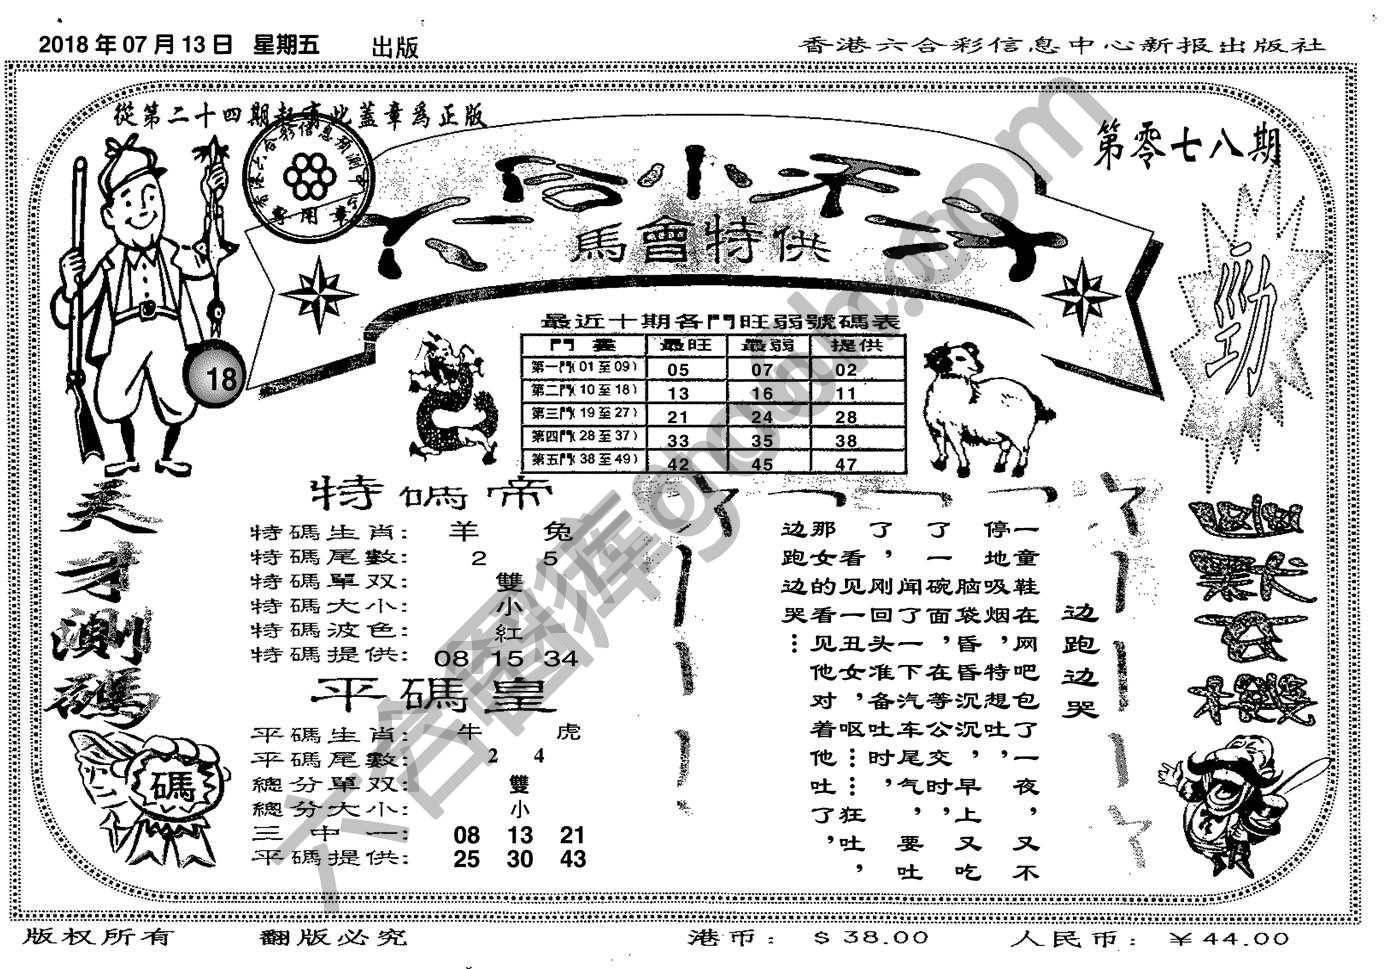 2018年07月13日 星期五 出版
香港六合彩信息中心新报出版社
第零七八期
馬會特供
18
最近十期各門旺弱號碼表
門 最旺 最弱 提供
第一門(01至09) 05 07 02
第二門(10至18) 13 16 11
第三門(19至27) 21 24 28
第四門(28至37) 33 35 38
第五門(38至49) 42 45 47
勁
天才測碼
碼
特碼帝
特碼生肖: 羊 兔
特碼尾數: 2 5
特碼單双: 雙
特碼大小: 小
特碼波色: 紅
特碼提供: 08 15 34
平碼皇
平碼生肖: 牛 虎
平碼尾數: 2 4
總分單双: 雙
總分大小: 小
三中一: 08 13 21
平碼提供: 25 30 43
边跑边哭
一童鞋在网吧包了一夜，又不
停地吸烟，特想吐，
脑袋昏昏沉沉，早上又吃
了一碗面，在等公交时，
闻了一下汽车尾气，要吐
了，刚回头准备吐时，
看见一丑女，呕……狂吐，
那女的看见他对着他吐了，
边跑边哭…
版权所有 翻版必究 港币: $38.00 人民币: ￥44.00